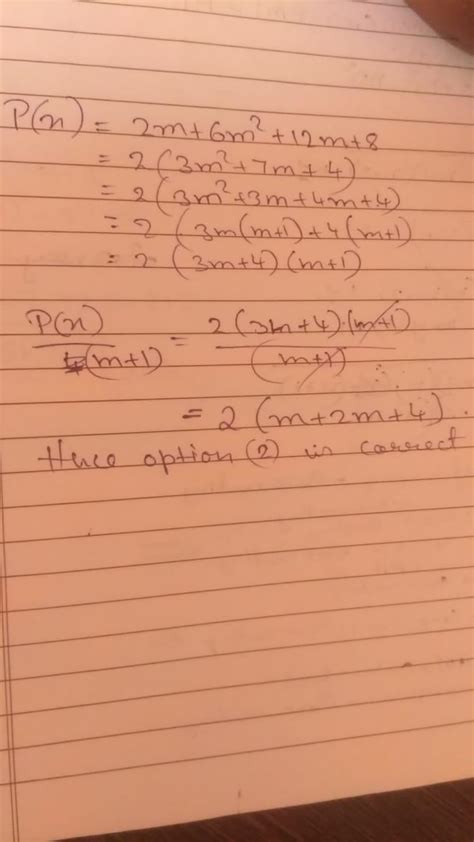 P(n) = 2m+6m²+12m+8
= 2(3m²+7m+4)
= 2(3m²+3m+4m+4)
= 2 (3m(m+1)+4(m+1)
= 2 (3m+4)(m+1)
P(n)/(m+1) = 2(3m+4)·(m+1)/(m+1)
= 2(m+2m+4).
Hence option (2) is correct